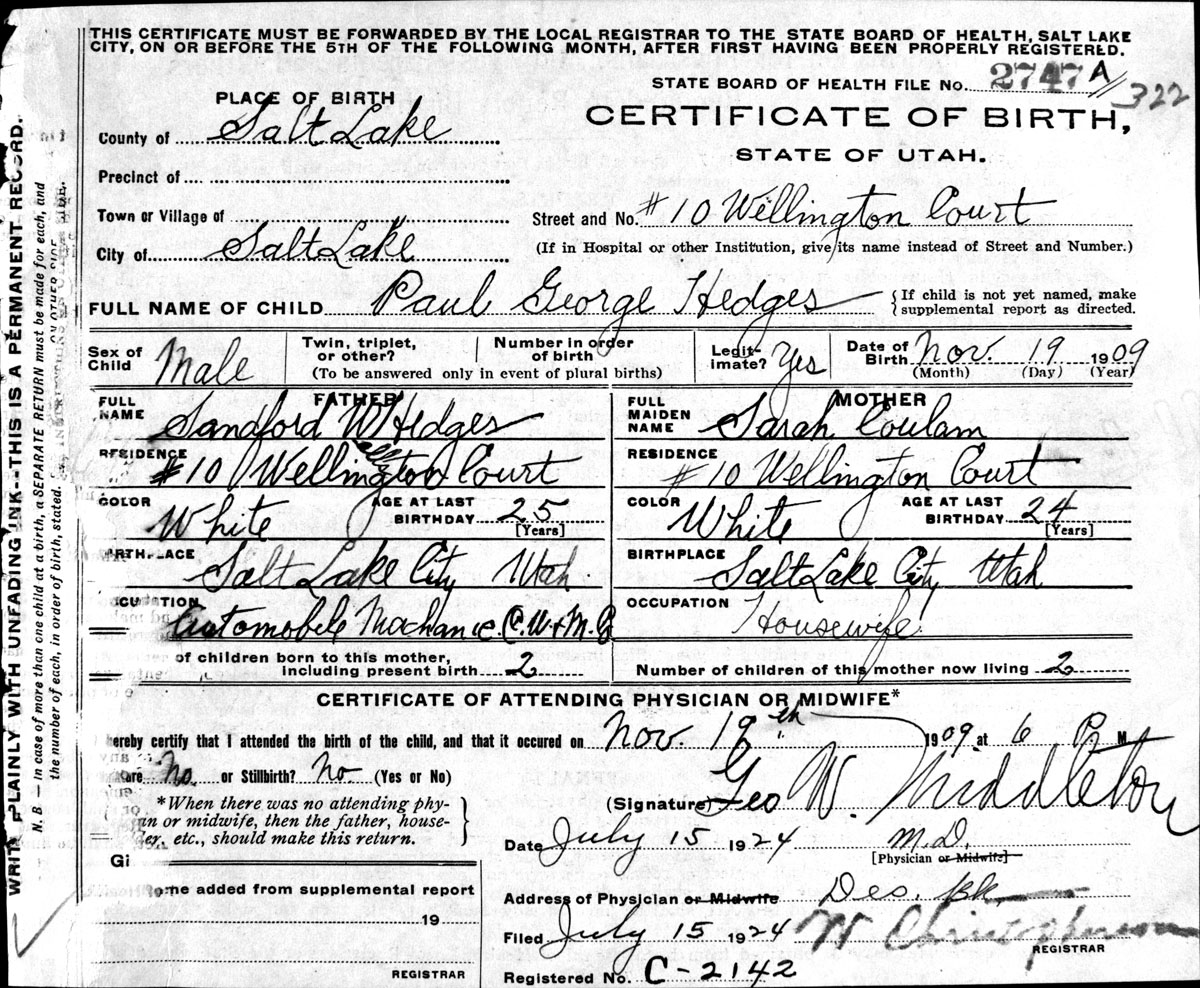 THIS CERTIFICATE MUST BE FORWARDED BY THE LOCAL REGISTRAR TO THE STATE BOARD OF HEALTH, SALT LAKE
CITY, ON OR BEFORE THE 5TH OF THE FOLLOWING MONTH, AFTER FIRST HAVING BEEN PROPERLY REGISTERED.
STATE BOARD OF HEALTH FILE No. 2747 A
322
PLACE OF BIRTH
CERTIFICATE OF BIRTH,
County of Salt Lake
STATE OF UTAH.
Precinct of
Town or Village of
Street and No. #10 Wellington Court
City of Salt Lake
(If in Hospital or other Institution, give its name instead of Street and Number.)
FULL NAME OF CHILD Paul George Hedges
{If child is not yet named, make
supplemental report as directed.
Sex of Child Male
Twin, triplet, or other?
Number in order of birth
(To be answered only in event of plural births)
Legitimate? Yes
Date of Birth Nov. 19 1909
(Month) (Day) (Year)
FATHER
FULL NAME Sandford W Hedges
MOTHER
FULL MAIDEN NAME Sarah Coulam
RESIDENCE #10 Wellington Court
RESIDENCE #10 Wellington Court
COLOR White AGE AT LAST BIRTHDAY 25 [Years]
COLOR White AGE AT LAST BIRTHDAY 24 [Years]
BIRTHPLACE Salt Lake City Utah
BIRTHPLACE Salt Lake City Utah
OCCUPATION Automobile Machanic C. W. + M. Co
OCCUPATION Housewife
of children born to this mother,
including present birth 2
Number of children of this mother now living 2
CERTIFICATE OF ATTENDING PHYSICIAN OR MIDWIFE*
hereby certify that I attended the birth of the child, and that it occured on Nov. 19th 1909 at 6 P M.
No or Stillbirth? No (Yes or No)
*When there was no attending phy-
or midwife, then the father, house-
er, etc., should make this return.
(Signature) Geo W. Middleton
Date July 15 1924 M.D.
[Physician or Midwife]
Gi
ome added from supplemental report
19
REGISTRAR
Address of Physician or Midwife Des. Bk
Filed July 15 1924 W Christopherson
REGISTRAR
Registered No. C-2142
WRITE PLAINLY WITH UNFADING INK--THIS IS A PERMANENT RECORD.
N. B — in case of more than one child at birth, a SEPARATE RETURN must be made for each, and
the number of each, in order of birth, stated.